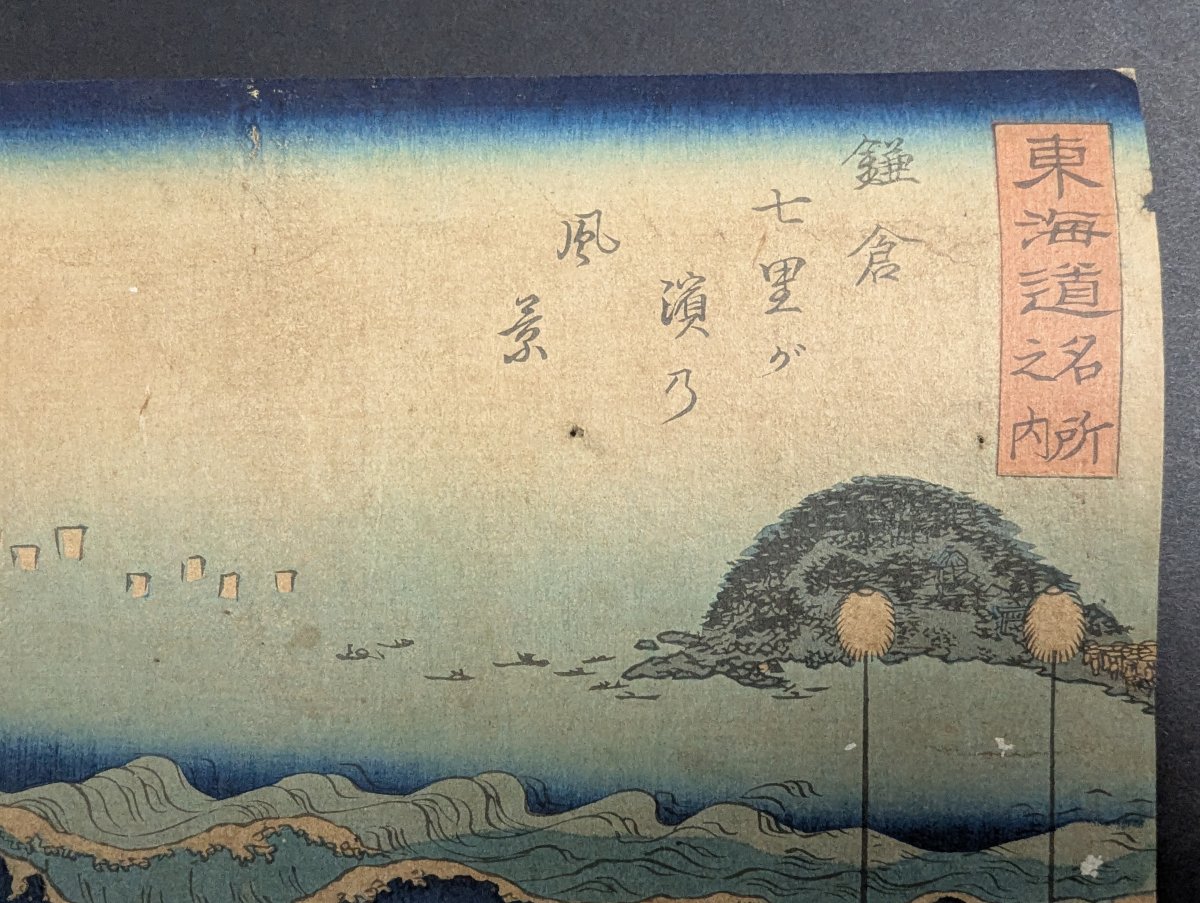 東海道名所
之内
鎌倉
七里が
濱乃
風景